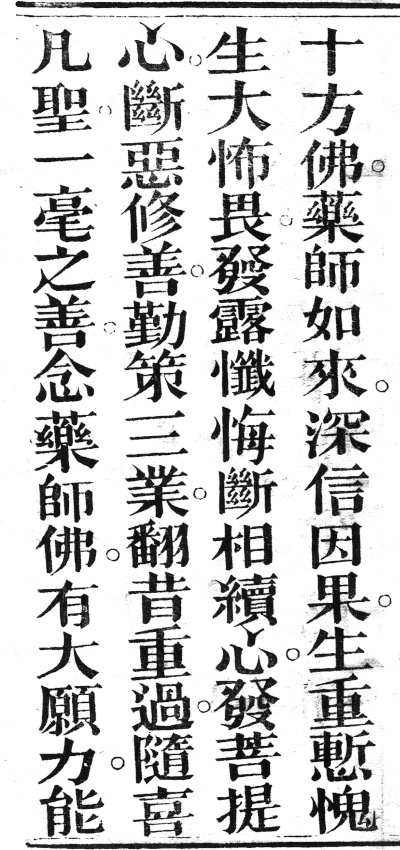 十方佛。藥師如來。深信因果。生重慙愧
生大怖畏。發露懺悔斷相續心。發菩提
心。斷惡修善。勤策三業。翻昔重過。隨喜
凡聖。一毫之善。念藥師佛。有大願力。能